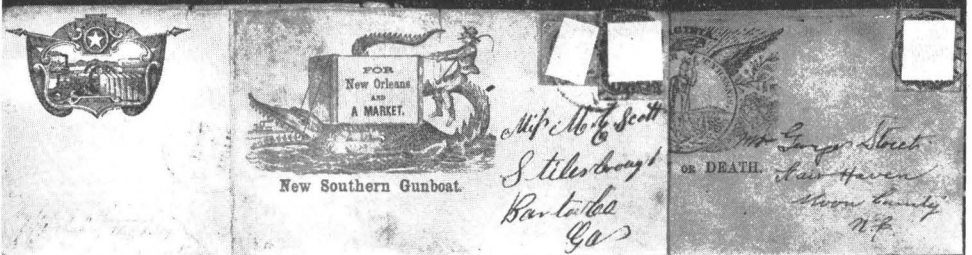 FOR
New Orleans
AND
A MARKET.
New Southern Gunboat.
Miss M C Scott
Stilesborough
Bartow Co
Ga
OR DEATH.
Mr George Street
New Haven
Moon County
N.C.